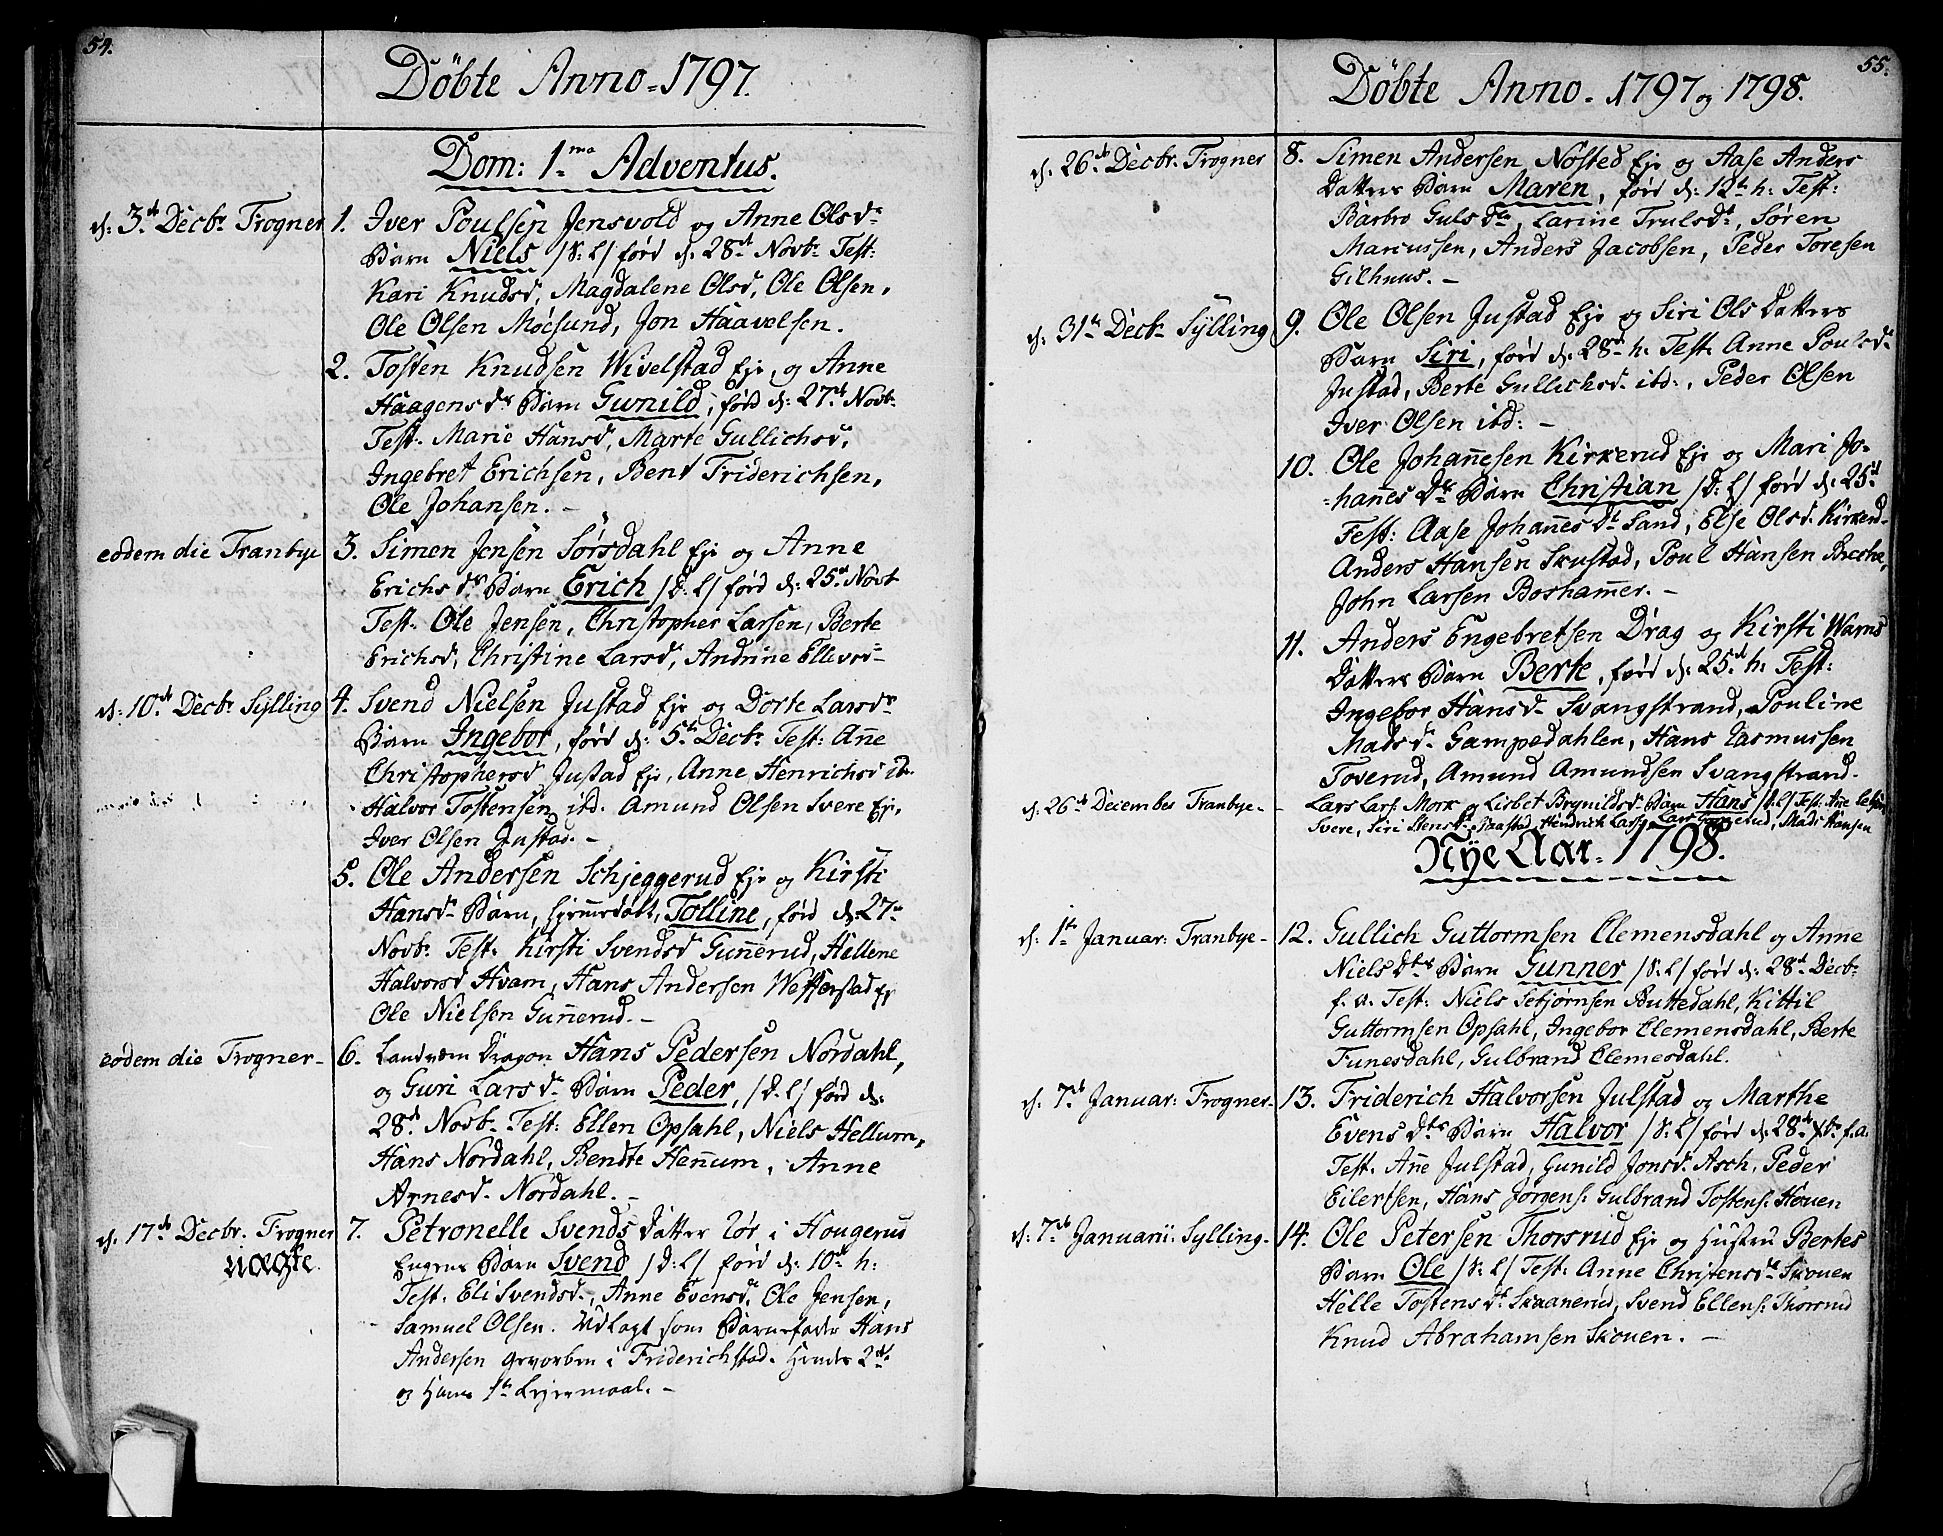 54.
Döbte Anno 1797.
Dom: 1.ma Adventus.
d: 3.de Decbr. Frogner 1. Iver Poulsen Jensvold og Anne Olsdr
Barn Niels /S:L/ född d: 28de Novbr Test:
Kari Knudsd, Magdalene Olsd, Ole Olsen,
Ole Olsen Möesund, Jon Haavelsen.
2. Tosten Knudsen Wivelstad Eje, og Anne
Haagensdr Barn Gunild, född d: 27de Novbr
Test. Marie Hansd, Marte Gullichsd,
Ingebret Erichsen, Bent Friderichsen,
Ole Johansen. -
eodem die Tranbye 3. Simen Jensen Sörsdahl Eje og Anne
Erichsdr Barn Erich /D:L/ född d: 25de Novb
Test: Ole Jensen, Christopher Larsen, Berte
Erichsd, Christine Larsd, Andrine Ellevsd-
d: 10.de Decbr Sylling 4. Svend Nielsen Justad Eje og Dorte Larsdr
Barn Ingebor, född d: 5te Decbr Test: Anne
Christophersd Justad Eje, Anne Henrichsd itd.
Halvor Tostensen itd. Amund Olsen Svere Ej,
Iver Olsen Justad. -
5. Ole Andersen Schjeggerud Eje og Kirsti
Hansdr Barn, hjemmedöbt, Tolline, född d: 27de
Novbr Test. Kirsti Svendsd Gunnerud, Hellene
Halvorsd Hvam, Hans Andersen Wefferstad Ej
Ole Nielsen Gunnerud. -
eodem die Frogner- 6. Landværn Dragon Hans Pedersen Nordahl,
og Guri Larsdr Barn Peder, /D:L/ född d:
28de Novbr Test: Ellen Opsahl, Niels Hellum,
Hans Nordahl, Bendte Hennum, Anne
Arnesd. Nordahl. -
d. 17de Decbr. Frogner 7. Petronelle Svends Datter lör, i Hougerus
uægte. Engene Barn Svend /D:L/ född d: 10de h:
Test. Eli Svendsd., Anne Evensd, Ole Jensen,
Samuel Olsen. Udlagt som Barnefader Hans
Andersen gevorben i Friderichstad. Hendes 2det
og Hans 1te Lejermaal. -
55.
Döbte Anno. 1797 og 1798.
d. 26de Decbr. Frogner 8. Simen Andersen Nösted Eje og Aase Anders
Datters Barn Maren, född d: 12te h: Test:
Barbro Gulsdtr, Larine Trulsdr, Sören
Marcussen, Anders Jacobsen, Peder Toresen
Gilhuus. -
d. 31te Decbr Sylling 9. Ole Olsen Justad Eje og Siri Ols Datters
Barn Siri, född d: 28de h: Test: Anne Poulsdr
Justad, Berte Gullichsd. itd:, Peder Olsen
Iver Olsen itd: -
10. Ole Johannesen Kirkerud Eje og Mari Jo-
-hannesdr Barn Christian /D:L/ född d: 25de
Test: Aase Johannesdr Sand, Else Olsd. Kirkerud-
Anders Hansen Skustad, Poul Hansen Breche,
John Larsen Boshammer. -
11. Anders Engebretsen Drag og Kirsti Warns
Datters Barn Berte, född d: 25de h: Test:
Ingebor Hansd. Svangstrand, Pouline
Madsdr. Gampedahlen, Hans Rasmussen
Toverud, Amund Amundsen Svangstrand.
d: 26de December Tranbye- - Lars Lars: Mork og Lisbet Brynildsdr Barn Hans /S:L/ Test: Ane
Svere, Siri Stensdr Paastad, Hendrich Lars: Mads Hansen
Nye Aar. 1798.
d. 1te Januar: Tranbye- 12. Gullich Guttormsen Clemensdahl og Anne
Nielsdtrs Barn Gunner /S:L/ född d: 28de Decbr
f. a. Test: Niels Sebjörnsen Buttedahl, Kittil
Guttormsen Opsahl, Ingebor Clemensdahl, Berte
Funesdahl, Gulbrand Clemesdahl.
d. 7de Januar: Frogner- 13. Friderich Halvorsen Julstad og Marthe
Evensdtrs Barn Halvor /S:L/ född d: 28de Xbr f. a.
Test. Ane Julstad, Gunild Jonsd. Asch, Peder
Eilertsen, Hans Jörgens: Gulbrand Tostens: Houen
d. 7de Januarii: Sylling- 14. Ole Petersen Thorsrud Eje og Hustru Bertes
Barn Ole /S:L/ Test: Anne Christensdr Skouen
Helle Tostensdr Skaanerud, Svend Ellens: Thorsrud
Knud Abrahamsen Skouen. -